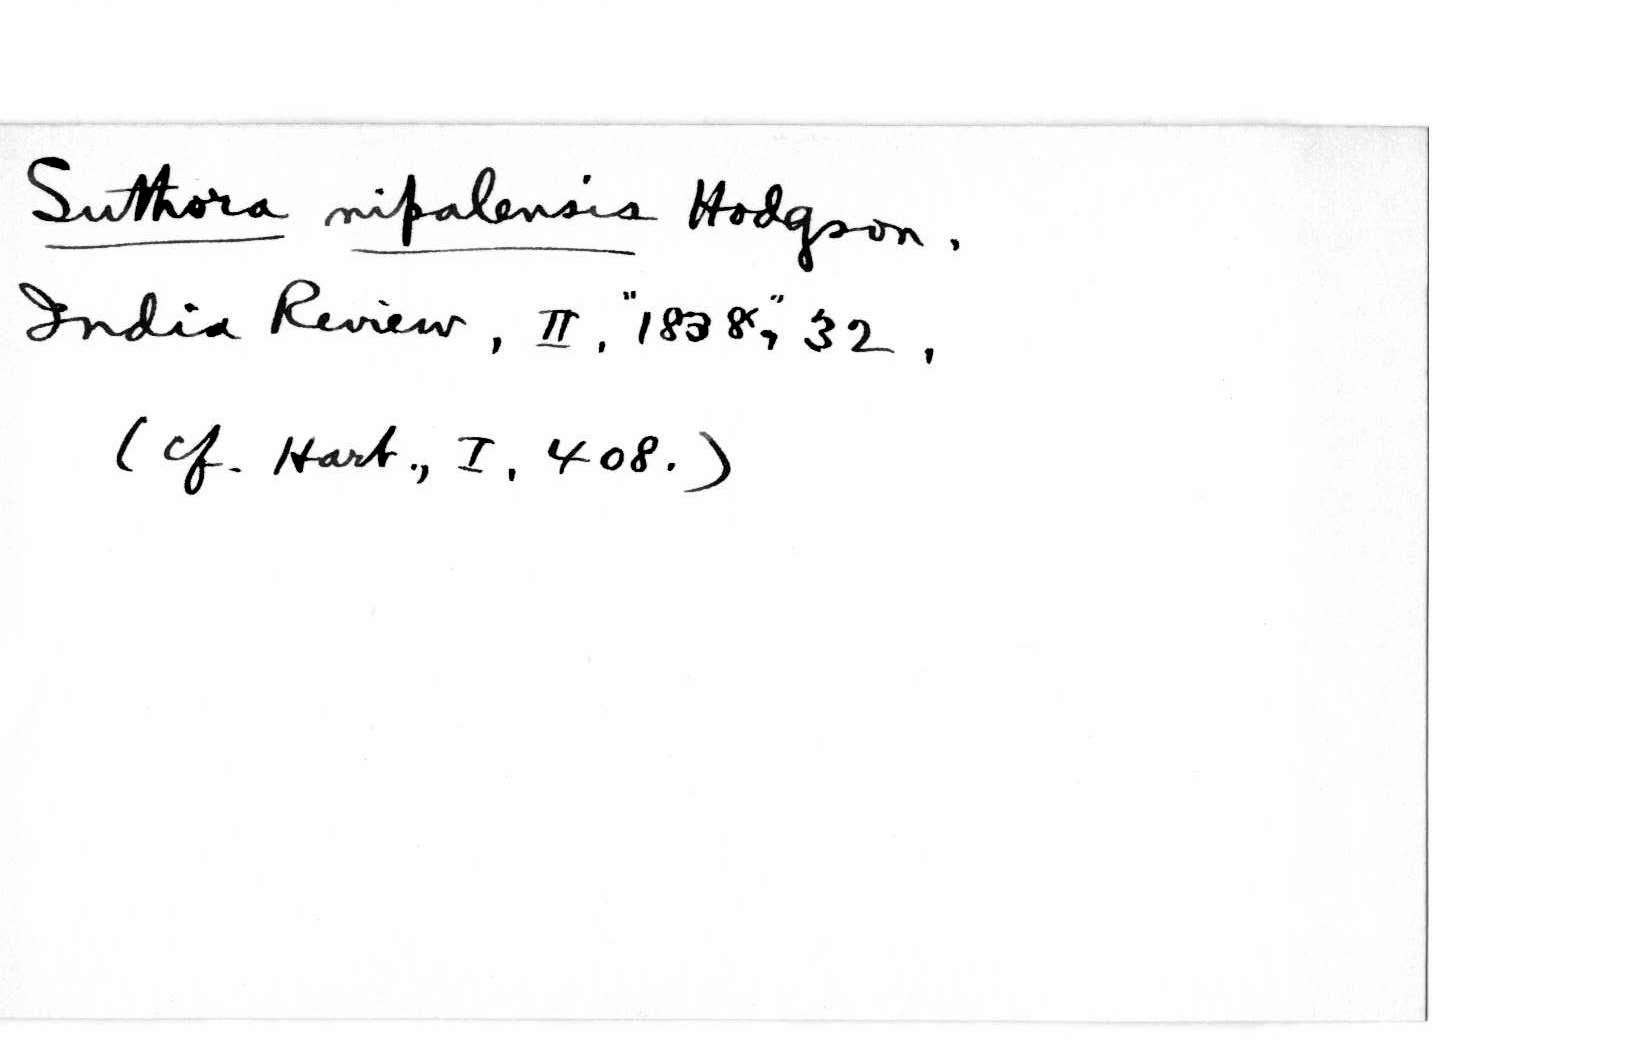 Suthora nipalensis Hodgson.
India Review, II, "1838", 32,
(cf. Hart., I, 408.)